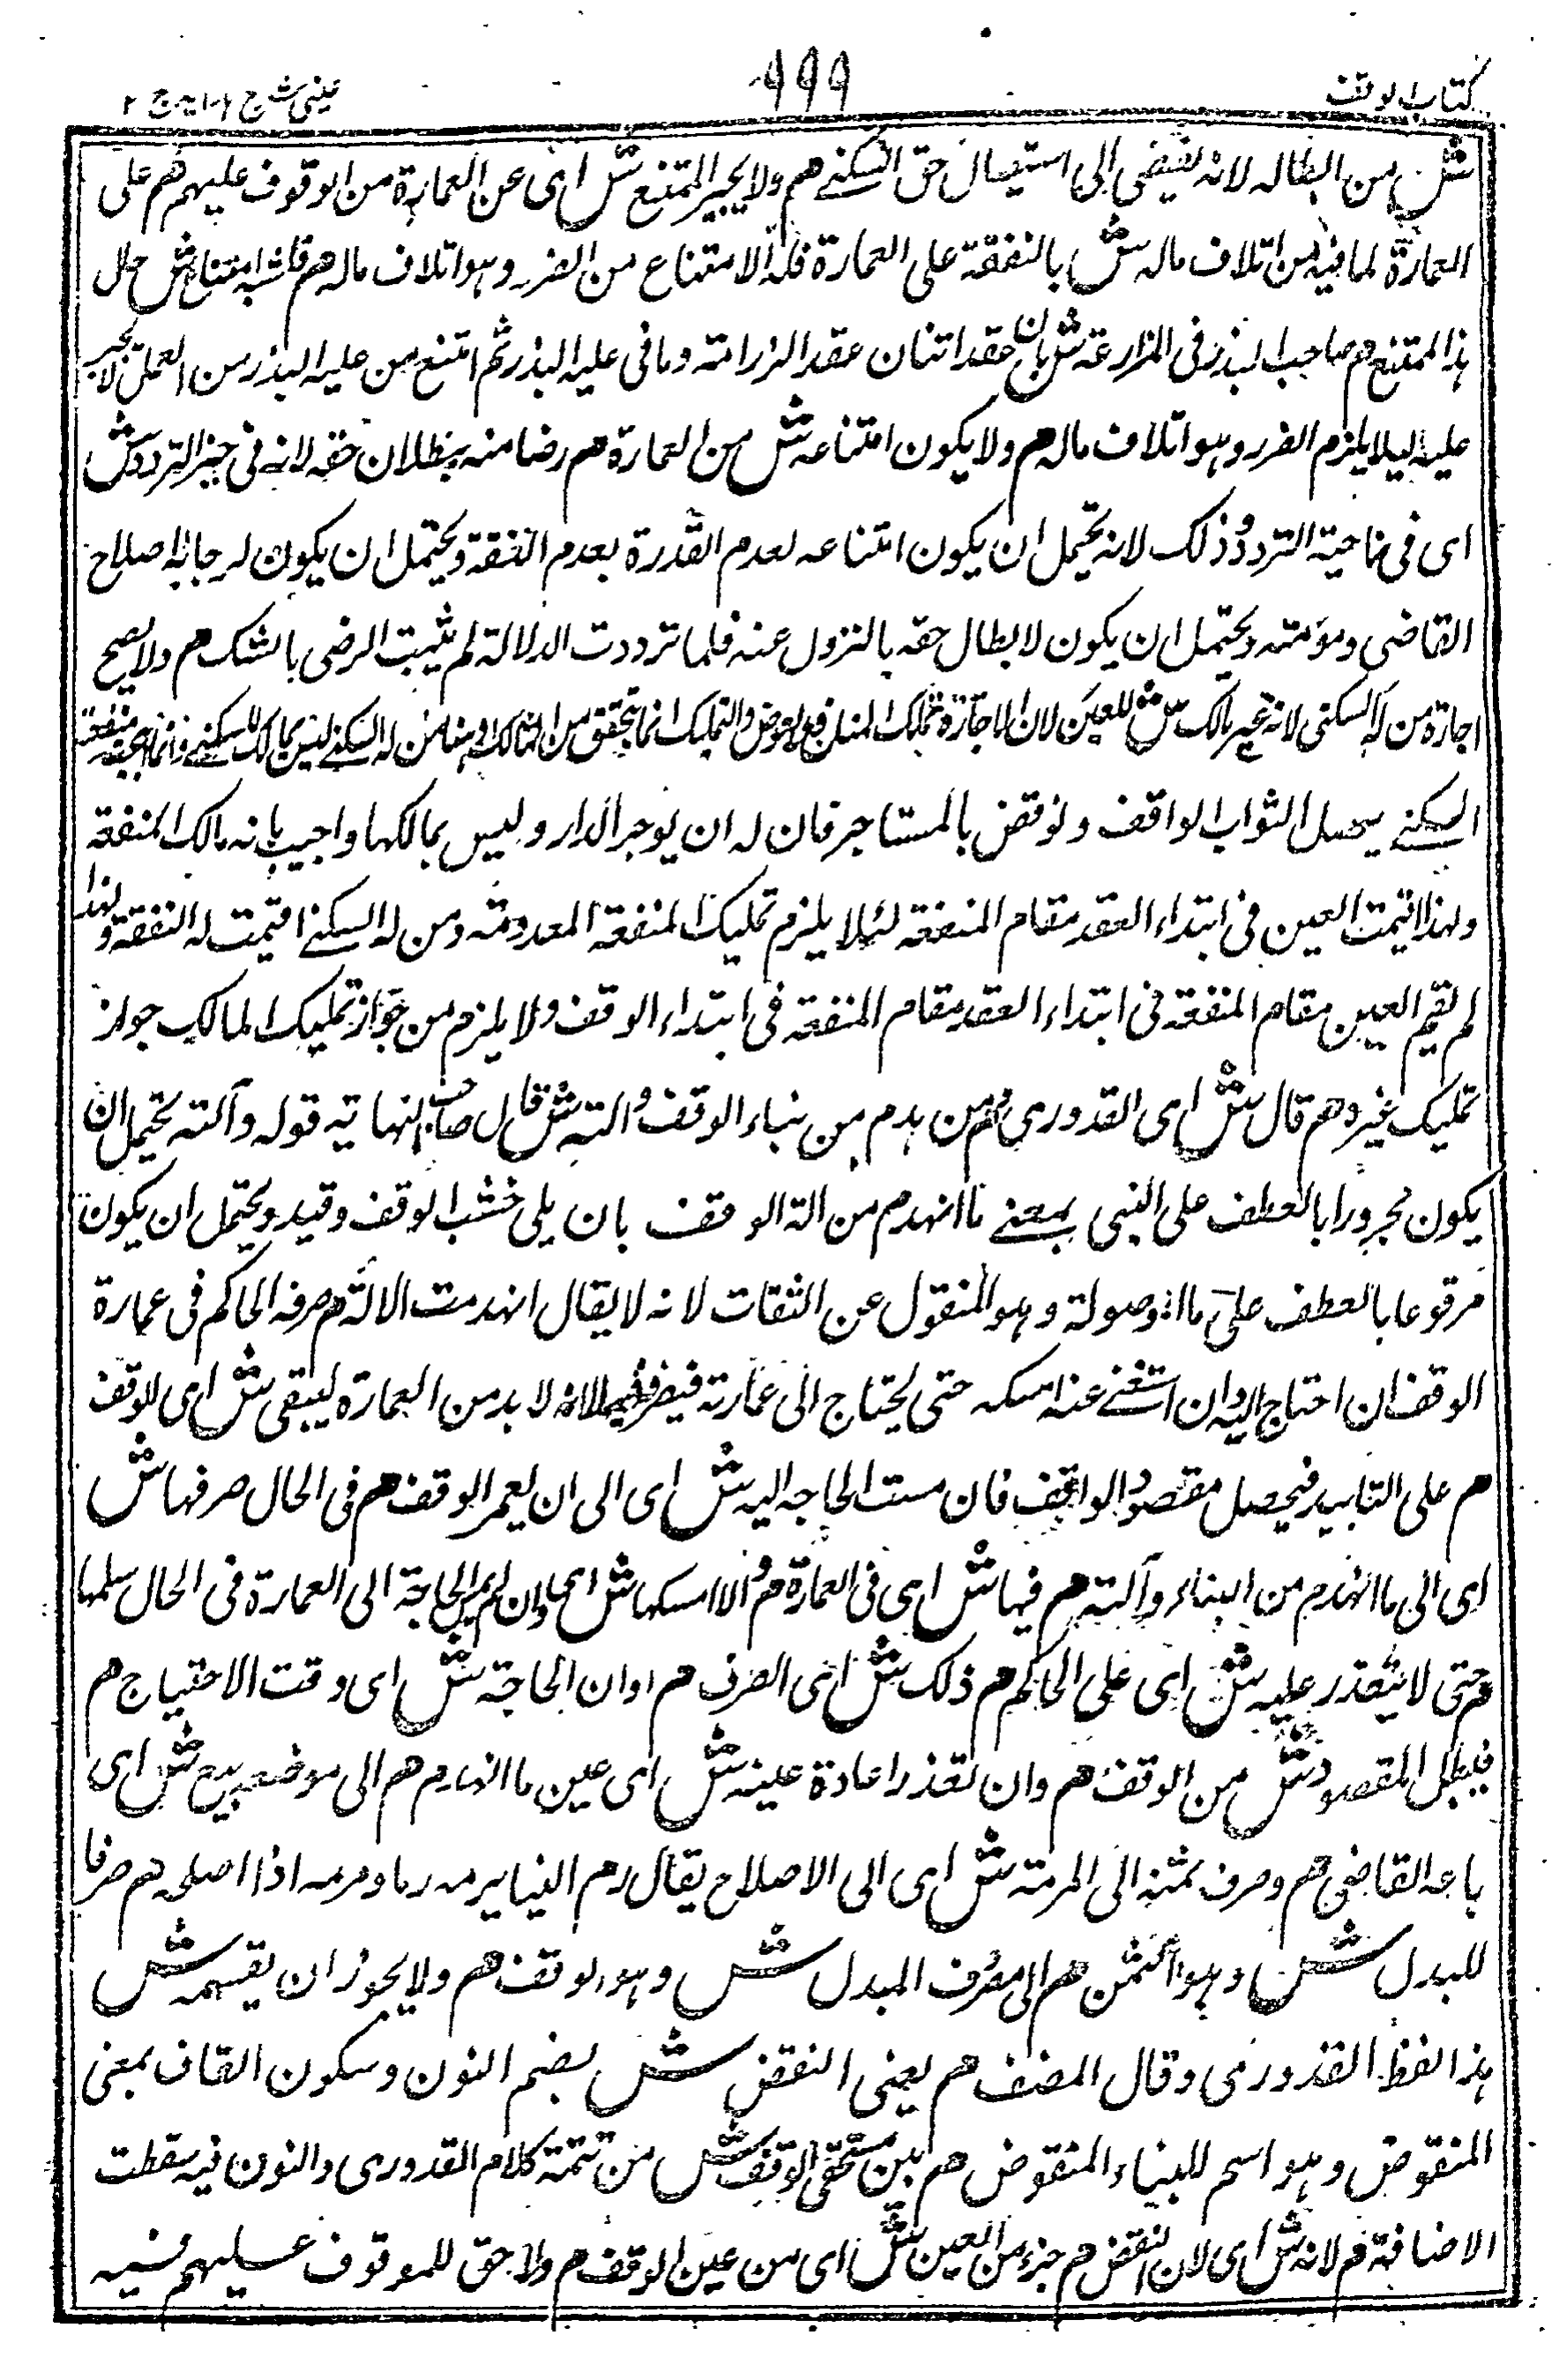 كتاب الوقف
٩٩٩
عينى شرح هدايه ج ٢
ش من ابطاله لانه يفضى الى استيصال حق السكنے هم ولا يجبر الممتنع ش اى عن العمارة من الموقوف عليهم هم على
العمارة لما فيه من اتلاف ماله ش بالنفقة على العمارة فله الامتناع من الضرر وهو اتلاف ماله هم فاشبه امتناع ش حال
هذا الممتنع هم صاحب البذر فى المزارعة ش بان عقد اثنان عقد المزارعة وما فى عليه البذر ثم امتنع من عليه البذر من العمل لا يجبر
عليه ليلا يلزم الضرر وهو اتلاف ماله هم ولا يكون امتناعه ش من العمارة هم رضا منه ببطلان حقه لانه فى حيز التردد ش
اى فى ناحية التردد وذلك لانه يحتمل ان يكون امتناعه لعدم القدرة بعدم النفقة ويحتمل ان يكون لرجائه اصلاح
القاضى ومؤمنته ويحتمل ان يكون لابطال حقه بالنزول عنه فلما ترددت الدلالة لم يثبت الرضى بالشك هم ولا يصح
اجارة من له السكنى لانه غير مالك ش للعين لان الاجازة تمليك المنافع بعوض والتمليك انما يتحقق من المالك وهنا من له السكنے ليس بمالك للسكنے وانما ابيح منفعة
السكنے يحصل الثواب الواقف ونوقض بالمستاجر فان له ان يوجر الدار وليس بمالكها واجيب بانه مالك المنفعة
ولهذا اقيمت العين فى ابتداء العقد مقام المنفعة لئلا يلزم تمليك المنفعة المعدومة ومن له السكنے اقيمت له النفقة ولهذا
لم تقم العين مقام المنفعة فى ابتداء العقد مقام المنفعة فى ابتداء الوقف ولا يلزم من جواز تمليك المالك جواز
تمليك غيره هم قال ش اى القدورى هم ومن هدم من بناء الوقف وآلته ش قال صاحب النهاية قوله وآلته يحتمل ان
يكون مجرورا بالعطف على البنى بمعنے ما انهدم من الة الوقف بان بلى خشب الوقف وقيد ويحتمل ان يكون
مرفوعا بالعطف على ما الموصولة وهو المنقول عن الثقات لانه لا يقال انهدمت الالة هم صرفه الحاكم فى عمارة
الوقف ان احتاج اليه وان استغنے عنه امسكه حتى يحتاج الى عمارته فيصرفه فيها لانه لا بد من العمارة ليبقى ش اى الوقف
هم على التابيد فيحصل مقصود الواقف فان مست الحاجه اليه ش اى الى ان يعمر الوقف هم فى الحال صرفها ش
اى الى ما انهدم من البناء وآلته هم فيها ش اى فى العمارة هم والا امسكها ش اى وان لم يكن الحاجة الى العمارة فى الحال سلمها
هم حتى لا يتعذر عليه ش اى على الحاكم هم ذلك ش اى الصرف هم اوان الحاجة ش اى وقت الاحتياج هم
فيبطل المقصود ش من الوقف هم وان تعذر اعادة عينه ش اى عين ما انهدم هم الى موضعه بيع ش اى
باعه القاضى هم وصرف ثمنه الى المرمة ش اى الى الاصلاح يقال رم البنا يرمه رما ومرمه اذا اصلحه هم صرفا
للبدل ش وهو الثمن هم الى مصرف المبدل ش وهو الوقف هم ولا يجوز ان يقسمه ش
هذا لفظ القدورى وقال المصنف هم يعنى النقض ش بضم النون وسكون القاف بمعنى
المنقوض وهو اسم للبناء المنقوض هم بين مستحقى الوقف ش من تتمة كلام القدورى والنون فيه سقطت
الاضافة هم لانه ش اى لان النقض هم جزء من العين ش اى من عين الوقف هم ولا حق للموقوف عليهم فيه